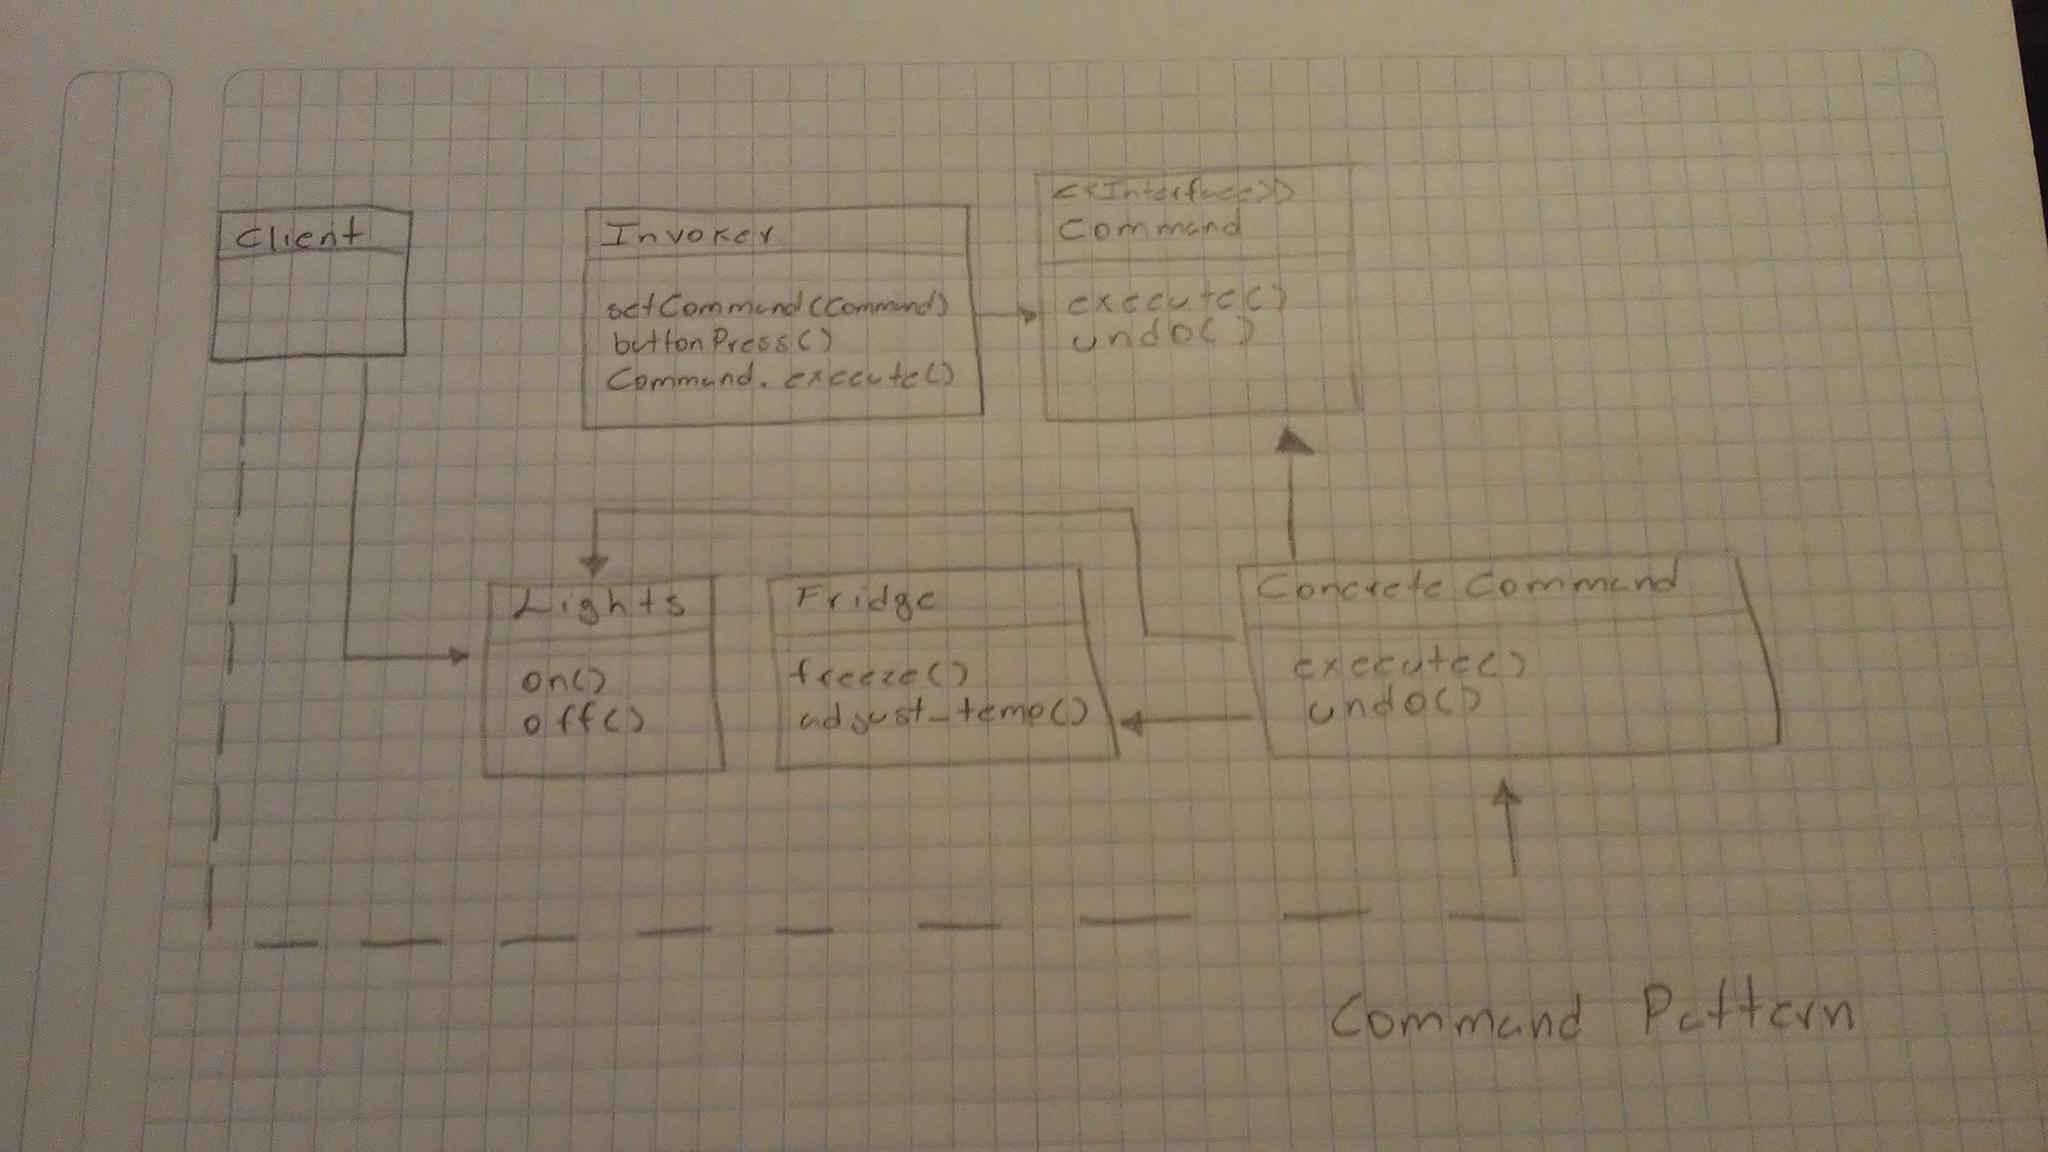 Client
Invoker
setCommand(Command)
buttonPress()
Command.execute()
<<Interface>>
Command
execute()
undo()
Lights
on()
off()
Fridge
freeze()
adjust_temp()
Concrete Command
execute()
undo()
Command Pattern